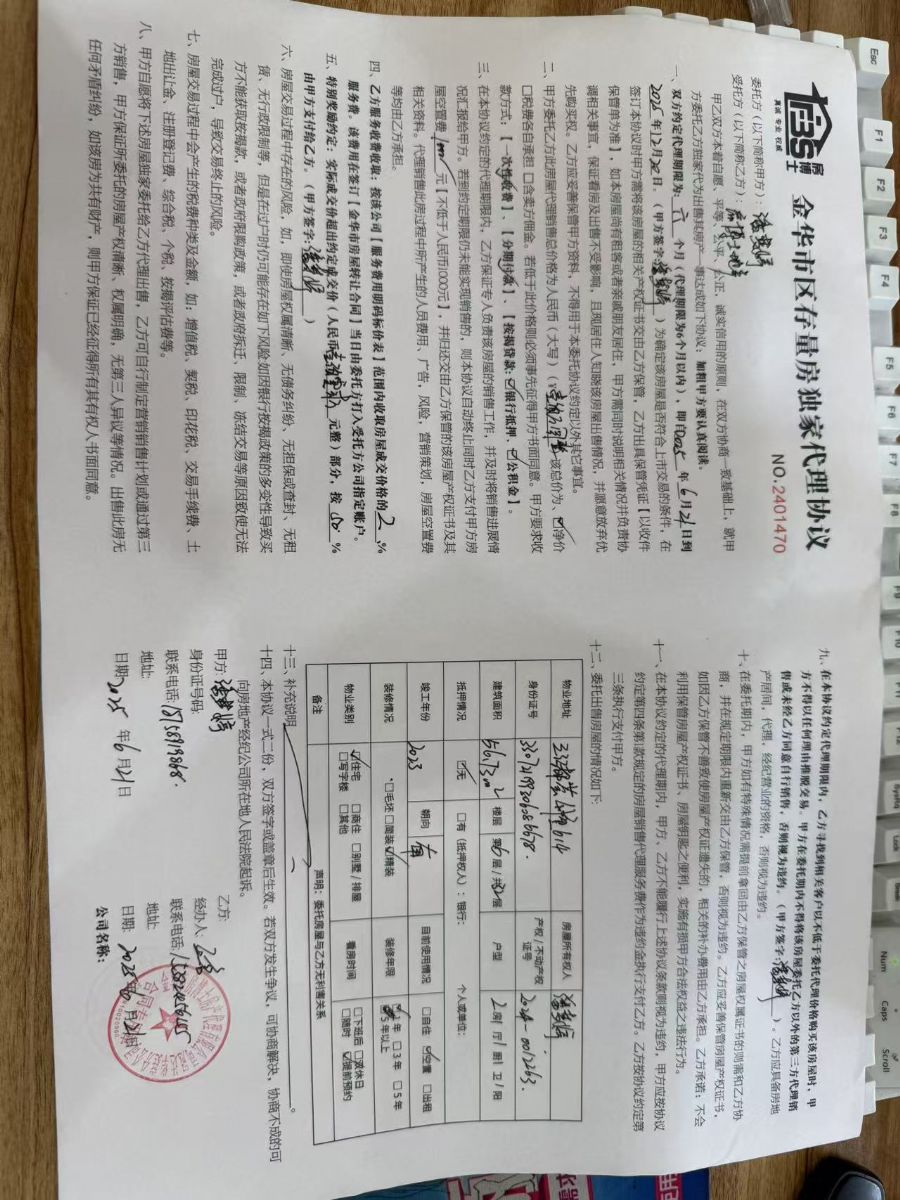 房博士
真诚 专业 权威
金华市区存量房独家代理协议
NO.2401470
委托方（以下简称甲方）：
受托方（以下简称乙方）：房博士地产
甲乙双方本着自愿、平等、公平、公正、诚实信用的原则，在双方协商一致基础上，就甲
方委托乙方独家代为出售其房产一事达成如下协议：加粗甲方要认真阅读。
一、双方约定代理期限为：六 个月（代理期限为6个月以内），即自2025年6月21日到
2025年12月20日。（甲方签字： ）为确定该房屋是否符合上市交易的条件，在
签订本协议时甲方需将该房屋的相关产权证书交由乙方保管，乙方出具保管凭证【以收件
保管单为准】，如本房屋尚有租客或者亲戚朋友居住，甲方需同时说明相关情况并负责协
调相关事宜，保证看房及出售不受影响，且现居住人知晓该房屋出售情况，并愿意放弃优
先购买权。乙方应妥善保管甲方资料，不得用于本委托协议约定以外其它事宜。
二、甲方委托乙方此房屋代理销售总价格为人民币（大写）（ ）该总价为、☑净价
□税费各自承担 □含卖方佣金，若低于此价格则必须事先征得甲方书面同意。甲方要求收
款方式：【一次性收费】、【分期付款】、【按揭贷款：☑银行抵押、☑公积金】。
三、在本协议约定的代理期限内，乙方保证专人负责该房屋的销售工作，并及时将销售进展情
况汇报给甲方。若到约定期限仍未能实现销售的，则本协议自动终止同时乙方支付甲方房
屋空置费 1000 元【不低于人民币1000元】，并归还交由乙方保管的该房屋产权证书及其
相关资料。代理销售此房过程中所产生的人员费用、广告，风险，营销策划，房屋空置费
等均由乙方承担。
四、乙方服务收费收取：按该公司【服务费用明码标价表】范围内收取房屋成交价格的 2 %
服务费，该费用在签订【金华市房屋转让合同】当日由委托方打入受托方公司指定账户。
五、特别奖励约定：实际成交价超出约定成交价（人民币 元整）部分，按 50 %
由甲方支付给乙方。（甲方签字： ）
六、房屋交易过程中存在的风险，如，即使房屋权属清晰、无债务纠纷，无担保或查封、无租
赁，无行政限制等，但是在过户时仍可能存在如下风险如因银行按揭政策的多变性导致买
方不能获取按揭款，或者政府限购政策，或者政府拆迁、限制，冻结交易等原因致使无法
完成过户，导致交易终止的风险。
七、房屋交易过程中会产生的税费种类及金额，如：增值税、契税、印花税、交易手续费、土
地出让金、注册登记费、综合税、个税、按揭评估费等。
八、甲方自愿将下述房屋独家委托给乙方代理出售，乙方可自行制定营销销售计划或通过第三
方销售，甲方保证所委托的房屋产权清晰、权属明确，无第三人异议等情况。出售此房无
任何矛盾纠纷，如该房为共有财产，则甲方保证已经征得所有其有权人书面同意。
九、在本协议约定代理期限内，乙方寻找到相关客户以不低于委托代理价格购买该房屋时，甲
方不得以任何理由推脱交易。甲方在委托期内不得将该房屋委托乙方以外的第三方代理销
售或未经乙方同意自行销售，否则视为违约。（甲方签字： ）。乙方应具备房地
产居间，代理，经纪营业的资格，否则视为违约。
十、在委托期内，甲方如有特殊情况需提前拿回由乙方保管之房屋权属证书的则需和乙方协
商，并在规定期限内重新交由乙方保管，否则视为违约。乙方应妥善保管房屋产权证书，
如因乙方保管不善致使房屋产权证遗失的，相关的补办费用由乙方承担。乙方承诺：不会
利用保管房屋产权证书、房屋钥匙之便利，实施有损甲方合法权益之违法行为。
十一、在本协议约定的代理期内，甲方、乙方不能履行上述协议条款则视为违约，甲方应按协议
约定第四条第1款规定的房屋销售代理服务费作为违约金执行支付乙方。乙方按协议约定第
三条执行支付甲方。
十二、委托出售房屋的情况如下：
物业地址 房屋所有权人
身份证号 330721199306286678 产权/不动产权证号 2024-0012263
建筑面积 56.73m² 楼层 第6层/共 层 户型 2房/厅/厨/卫/阳
抵押情况 ☑无 □有（抵押权人）：银行： 个人或单位：
竣工年份 2023 朝向 南 目前使用情况 □自住 ☑空置 □出租
装修情况 □毛坯 □简装 ☑精装 装修年限 ☑1年 □3年 □5年 □5年以上
物业类别 ☑住宅 □商住 □别墅/排屋 □写字楼 □其他 看房时间 □下班后 □双休日 □随时 ☑提前预约
备注 声明：委托房屋与乙方无利害关系
十三、补充说明
十四、本协议一式二份，双方签字或盖章后生效。若双方发生争议，可协商解决，协商不成的可
向房地产经纪公司所在地人民法院起诉。
甲方：
身份证号码：
联系电话：
地址：
日期：2025 年 6 月 21日
乙方：
经办人：
联系电话：
地址：
日期：2025年6月21日
公司名称：
合同专用章
Esc
F1
F2
F3
F4
F5
F6
F7
F8
F9
F10
Num
Caps
Scroll